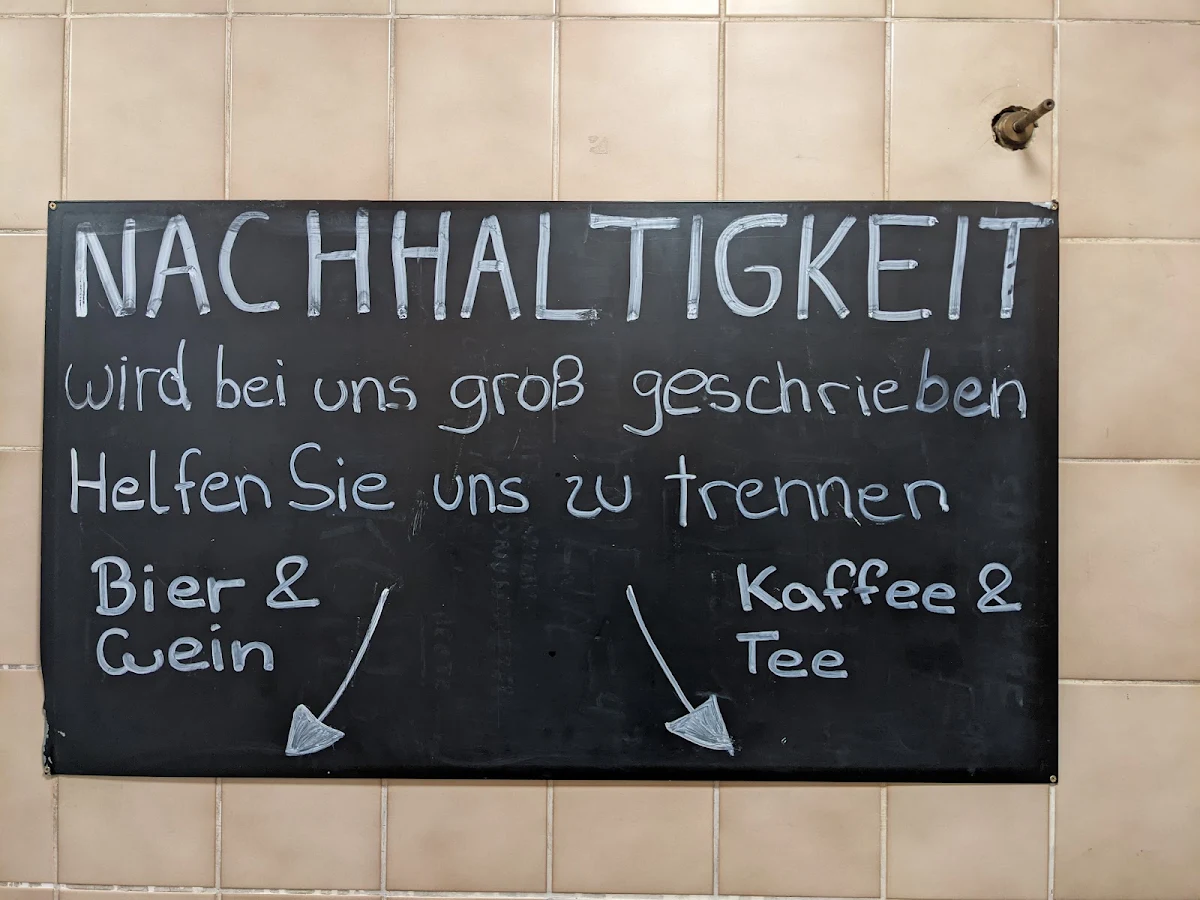 NACHHALTIGKEIT
wird bei uns groß geschrieben
Helfen Sie uns zu trennen
Bier &
Wein
Kaffee &
Tee